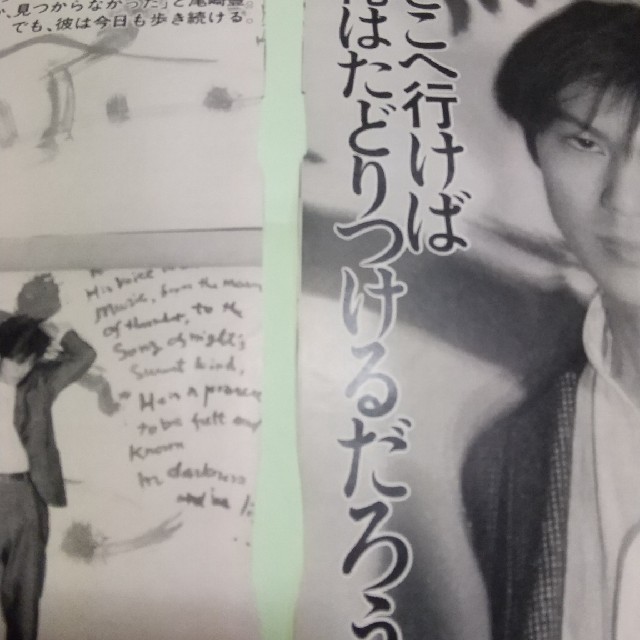 か、見つからなかった」と尾崎豊。
でも、彼は今日も歩き続ける。
こへ行けば
はたどりつけるだろう
His voice
Music, from the
of thunder, to the
Song of night's
Sweet bird;
He is a
to be felt and
Known
In darkness
and